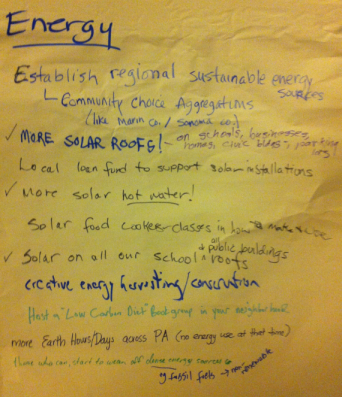 Energy
Establish regional sustainable energy sources
Community Choice Aggregations
(like Marin Co. / Sonoma Co.)
✓ MORE SOLAR ROOFS! - on schools, businesses,
homes, civic bldgs, parking lots)
Local loan fund to support solar installations
✓ More solar hot water!
Solar food cooker classes in how to make & use
✓ Solar on all our school & all public buildings roofs
creative energy harvesting/conservation
Host a "Low Carbon Diet" Book group in your neighborhood.
more Earth Hours/Days across PA (no energy use at that time)
those who can, start to wean off dense energy sources
fossil fuels → non-renewable